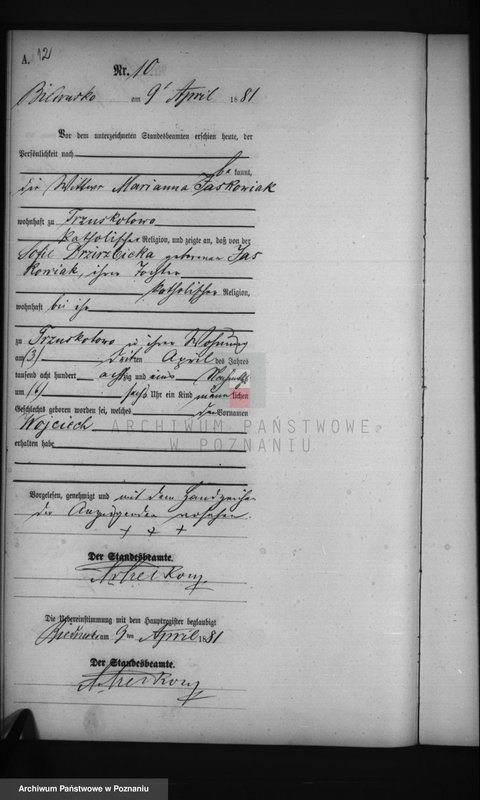 A. 12
Nr. 10
am 9 April 1881
Vor dem unterzeichneten Standesbeamten erschien heute, der
Persönlichkeit nach
be kannt,
die Wittwe Marianna Jaskowiak
wohnhaft zu Trzuskotowo
katholischer Religion, und zeigte an, daß von der
Sofie Drzirzbicka geborenen Jas
kowiak, ihrer Tochter
katholischer Religion,
wohnhaft bei ihr
zu Trzuskotowo in ihrer Wohnung
am (3) dritten April des Jahres
tausend acht hundert achtzig und eins Nachmittags
um (6) sechs Uhr ein Kind männlichen
Geschlechts geboren worden sei, welches den Vornamen
Wojciech
erhalten habe
ARCHIWUM PAŃSTWOWE
W POZNANIU
Vorgelesen, genehmigt und mit dem Handzeichen
der Anzeigenden versehen.
+ + +
Der Standesbeamte.
Die Uebereinstimmung mit dem Hauptregister beglaubigt
am 9 ten April 1881
Der Standesbeamte.
Archiwum Państwowe w Poznaniu